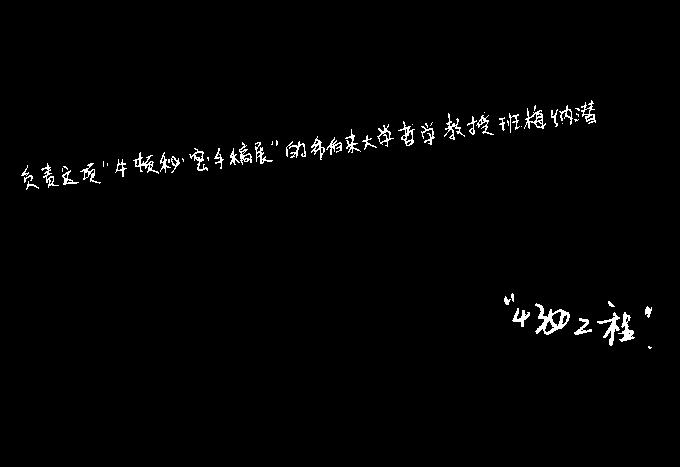 负责这项"牛顿秘密手稿展"的希伯来大学哲学教授班梅纳潜
"430工程".